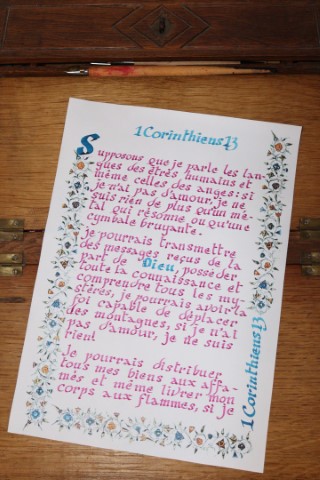 1 Corinthiens 13
Supposons que je parle les lan-
gues des êtres humains et
même celles des anges: si
je n'ai pas d'amour, je ne
suis rien de plus qu'un mé-
tal qui résonne ou qu'une
cymbale bruyante.
je pourrais transmettre
des messages reçus de la
part de Dieu, posséder
toute la connaissance et
comprendre tous les my-
stères, je pourrais avoir la
foi capable de déplacer
des montagnes, si je n'ai
pas d'amour, je ne suis
rien!
Je pourrais distribuer
tous mes biens aux affa-
més et même livrer mon
corps aux flammes, si je
1 Corinthiens 13